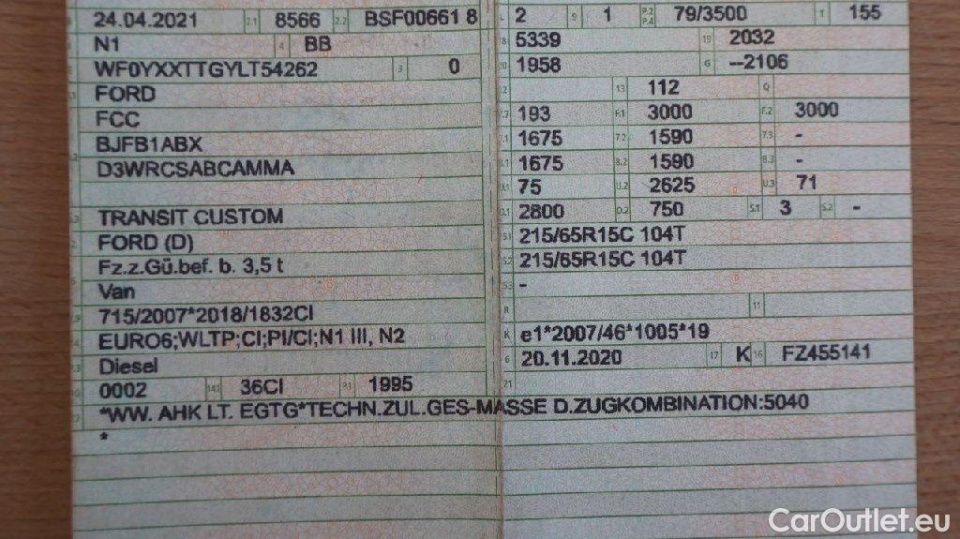 24.04.2021 2.1 8566 2.2 BSF00661 8 L 2 9 1 P.2 P.4 79/3500 T 155
N1 4 BB 5339 19 2032
WF0YXXTTGYLT54262 3 0 1958 G --2106
FORD 13 112 Q
FCC 193 F.1 3000 F.2 3000
BJFB1ABX 1675 7.2 1590 7.3 -
D3WRCSABCAMMA 1675 8.2 1590 8.3 -
75 U.2 2625 U.3 71
TRANSIT CUSTOM 2800 O.2 750 S.1 3 S.2 -
FORD (D) 215/65R15C 104T
Fz.z.Gü.bef. b. 3,5 t 215/65R15C 104T
Van -
715/2007*2018/1832CI R 11
EURO6;WLTP;CI;PI/CI;N1 III, N2 K e1*2007/46*1005*19
Diesel 6 20.11.2020 17 K 16 FZ455141
0002 14.1 36CI P.1 1995 21
*WW. AHK LT. EGTG*TECHN.ZUL.GES-MASSE D.ZUGKOMBINATION:5040
*
CarOutlet.eu